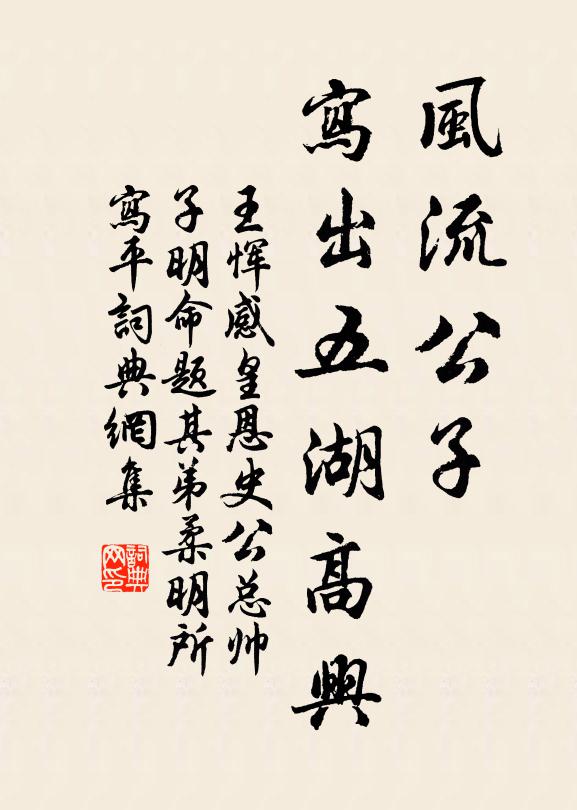 風流公子
寫出五湖高興
王恽感皇恩史公总帅
子明命题其弟柔明所
寫平詞典網集
詞典
网印